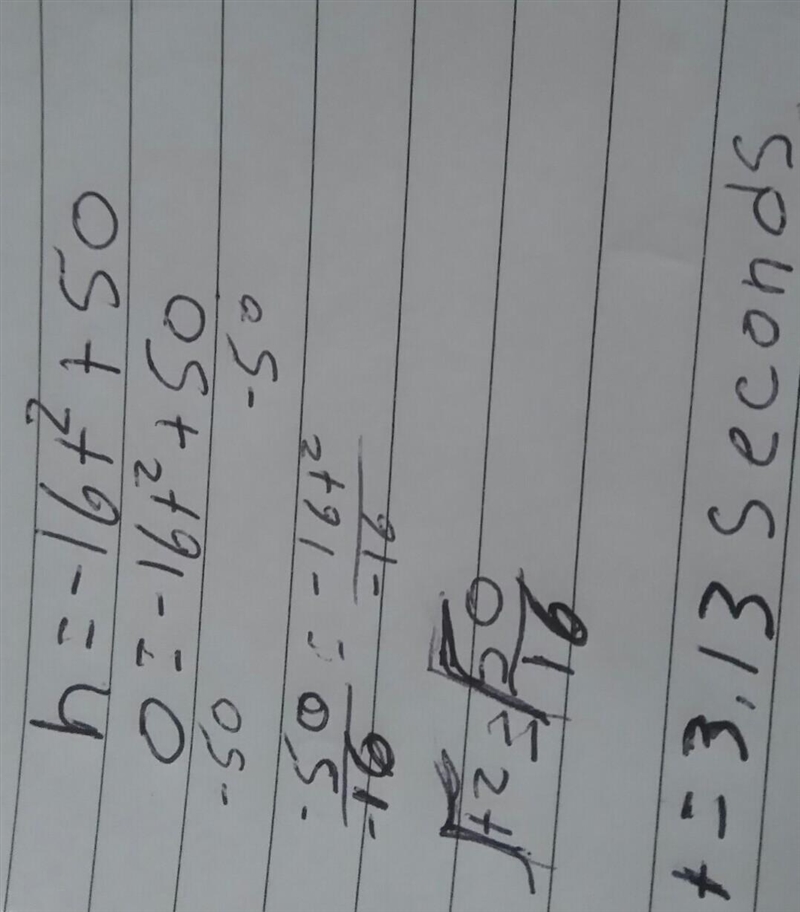 h = -16t² + 50
0 = -16t² + 50
-50 -50
-50 = -16t²
-16 -16
√t² = √50/16
t = 3.13 seconds